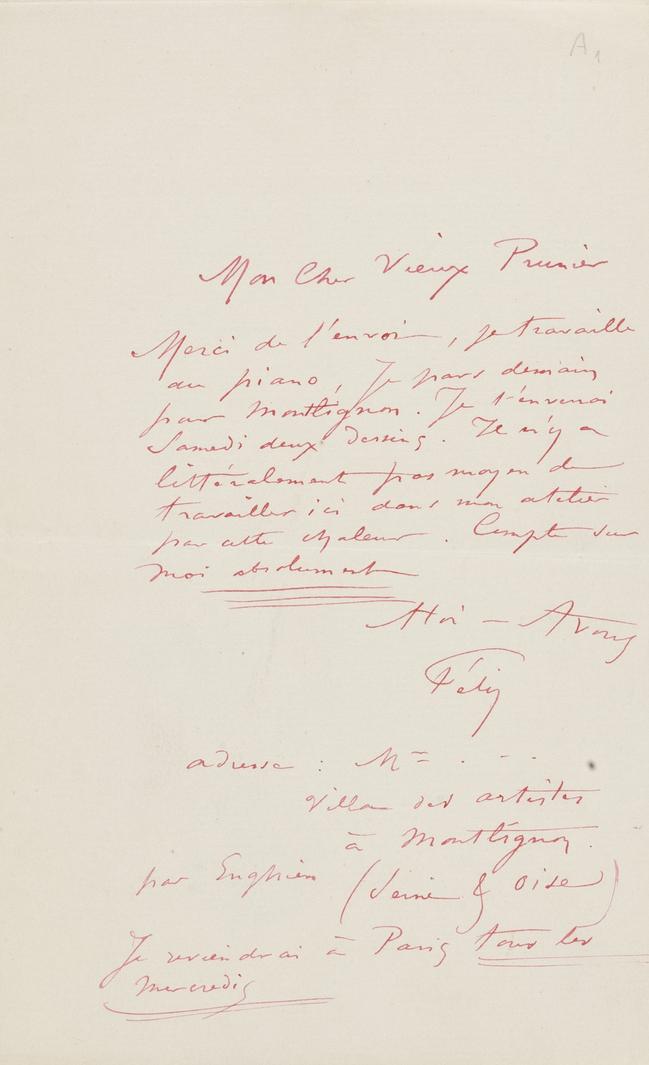 A1
Mon Cher Vieux Prunier
Merci de l'envoi, je travaille
au piano, Je pars demain
pour Montlignon. Je t'enverrai
Samedi deux dessins. Il n'y a
littéralement pas moyen de
travailler ici dans mon atelier
par cette chaleur. Compte sur
moi absolument
À toi — 
Féli
adresse : Mme . - -
Villa des artistes
à Montlignon.
par Enghien (Seine & Oise)
Je reviendrai à Paris tous les
mercredis